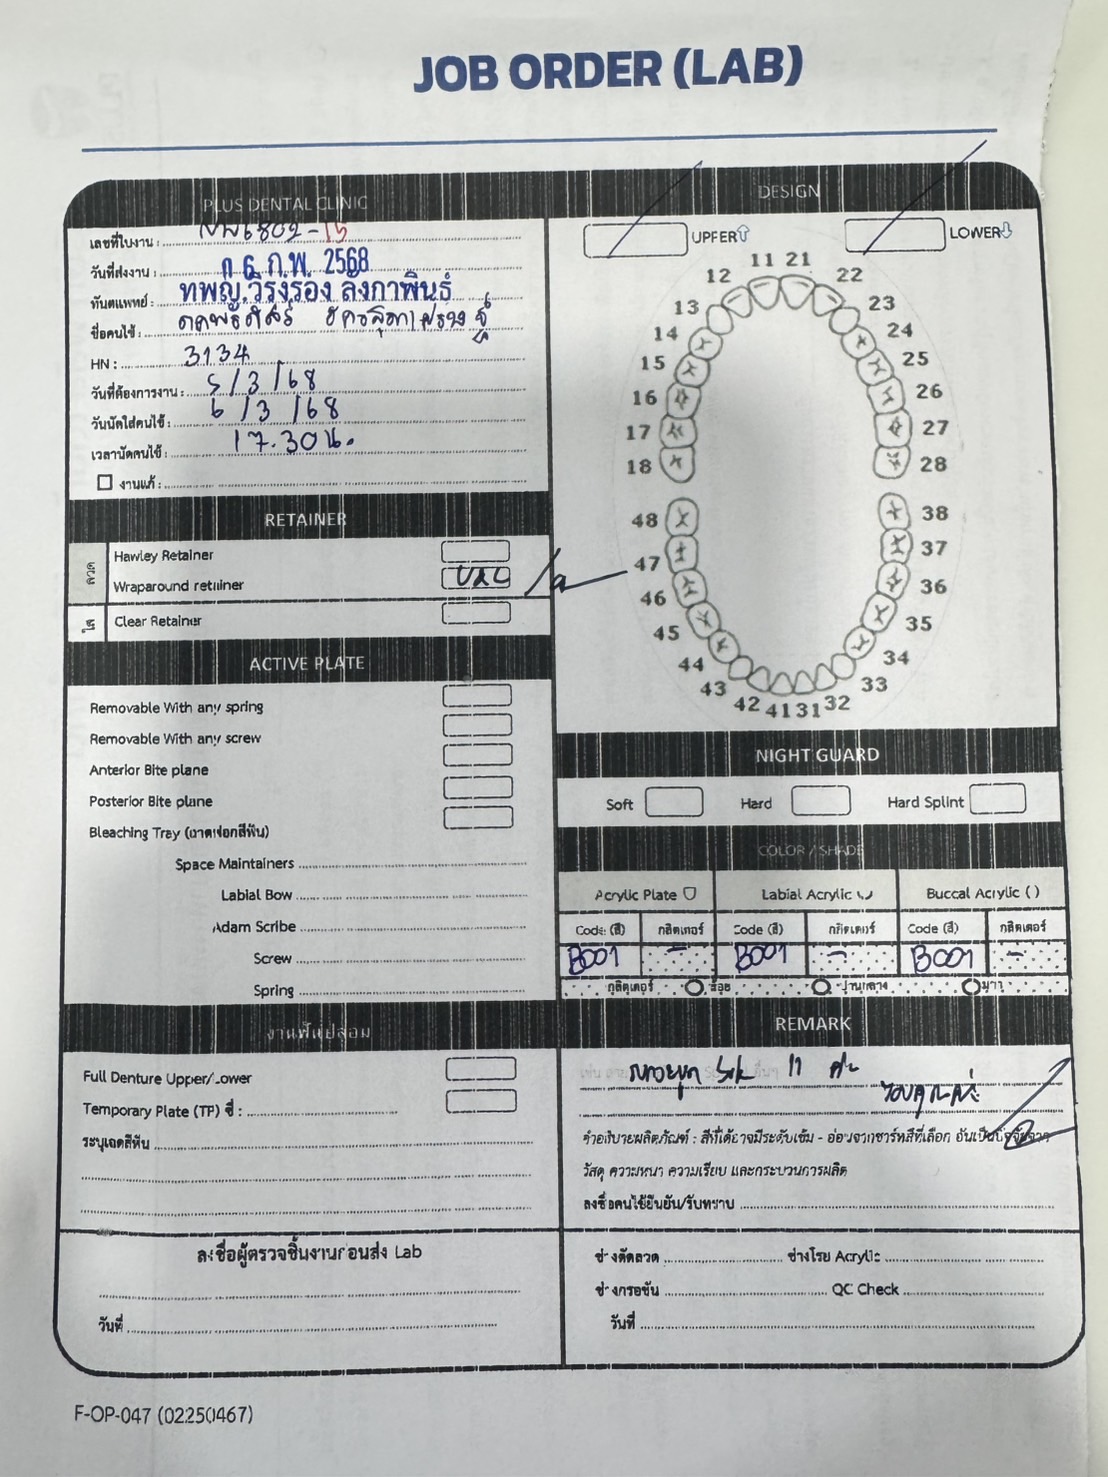 JOB ORDER (LAB)
PLUS DENTAL CLINIC
เลขที่ใบงาน : NW6802-15
วันที่ส่งงาน : 0 6 ก.พ. 2568
ทันตแพทย์ : ทพญ.วิรงรอง ลังกาพินธุ์
ชื่อคนไข้ :
HN : 3134
วันที่ต้องการงาน : 5/3/68
วันนัดใส่คนไข้ : 6/3/68
เวลานัดคนไข้ : 17.30 น.
งานแก้ :
RETAINER
ลวด
Hawley Retainer
Wraparound retainer
ใส
Clear Retainer
ACTIVE PLATE
Removable With any spring
Removable With any screw
Anterior Bite plane
Posterior Bite plane
Bleaching Tray (ถาดฟอกสีฟัน)
Space Maintainers
Labial Bow
Adam Scribe
Screw
Spring
งานฟันปลอม
Full Denture Upper/Lower
Temporary Plate (TP) ซี่ :
ระบุเฉดสีฟัน
ลงชื่อผู้ตรวจชิ้นงานก่อนส่ง Lab
วันที่
DESIGN
UPPER
LOWER
11 21
12 22
13 23
14 24
15 25
16 26
17 27
18 28
48 38
47 37
46 36
45 35
44 34
43 33
42 41 31 32
NIGHT GUARD
Soft Hard Hard Splint
COLOR / SHADE
Acrylic Plate Labial Acrylic Buccal Acrylic ( )
Code (สี) กลิตเตอร์ Code (สี) กลิตเตอร์ Code (สี) กลิตเตอร์
B001 - B001 - B001 -
กลิตเตอร์ น้อย ปานกลาง มาก
REMARK
คำอธิบายผลิตภัณฑ์ : สีที่ได้อาจมีระดับเข้ม - อ่อนจากชาร์ทสีที่เลือก อันเป็นปัจจัยจาก
วัสดุ ความหนา ความเรียบ และกระบวนการผลิต
ลงชื่อคนไข้ยืนยัน/รับทราบ
ช่างดัดลวด ช่างโรย Acrylic
ช่างกรอขัน QC Check
วันที่
F-OP-047 (02250467)